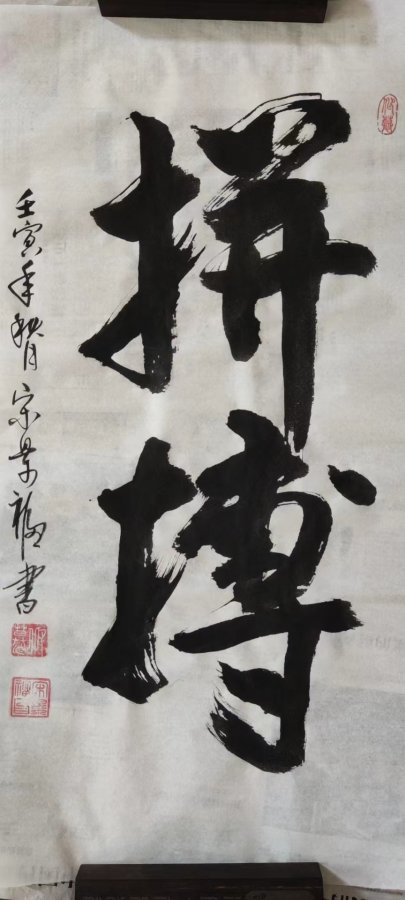 拼搏
壬寅年秋月宗景福書